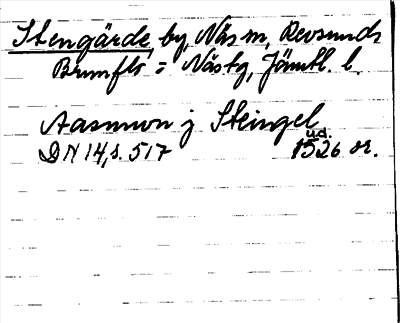 Stengärde, by, Näs m, Revsunds
Brunflo = Näs tg, Jämtl. l.
Aasmwn j Steingel
u.d.
DN 14, s. 517 1526 or.